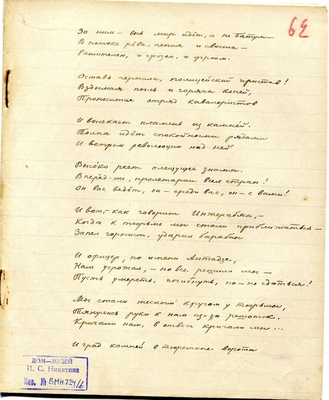 62
За ним – весь мир идёт, а не Батум
В потоке рёва, пения и свиста –
Решителен, и грозен, и угрюм.
Оставь чернила, полицейский пристав!
Вздымая пыль и горяча коней,
Проносится отряд кавалеристов
И высекает пламень из камней.
Толпа идёт спокойными рядами
И ветром революции над ней
Высоко реет плещущее знамя.
Вперёд-же, пролетарии всех стран!
Он вас ведёт, он – среди вас, он – с вами!
И вот – как говорит
Когда к тюрьме мы стали приближаться –
Запел горнист, ударил барабан
И офицер, по имени Антадзе,
Нам угрожал, – но все решило мы –
Пусть умереть, погибнуть, но – не сдаться!
Мы стали тесным кругом у тюрьмы,
Тянулись руки к нам из-за решоток.
Кричали нам, в ответ кричали мы...
И град камней в тюремные ворота
ДОМ-МУЗЕЙ
И. С. Никитина
Инв. №